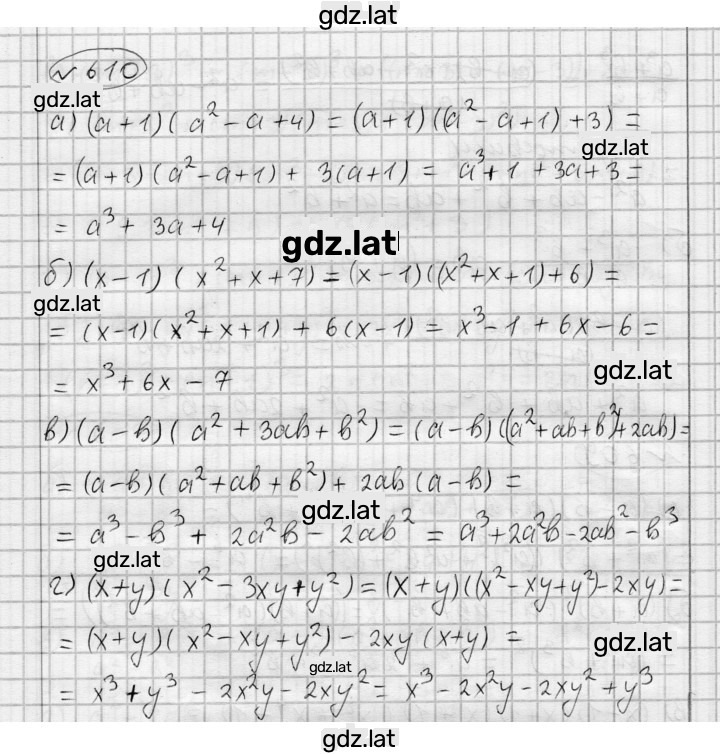 gdz.lat
№ 610
gdz.lat
а) (a+1)(a² - a + 4) = (a+1)((a² - a + 1) + 3) =
gdz.lat
= (a+1)(a² - a + 1) + 3(a+1) = a³ + 1 + 3a + 3 =
= a³ + 3a + 4
gdz.lat
б) (x-1)(x² + x + 7) = (x-1)((x² + x + 1) + 6) =
gdz.lat
= (x-1)(x² + x + 1) + 6(x-1) = x³ - 1 + 6x - 6 =
gdz.lat
= x³ + 6x - 7
в) (a-b)(a² + 3ab + b²) = (a-b)((a² + ab + b²) + 2ab) =
= (a-b)(a² + ab + b²) + 2ab(a-b) =
gdz.lat
= a³ - b³ + 2a²b - 2ab² = a³ + 2a²b - 2ab² - b³
gdz.lat
г) (x+y)(x² - 3xy + y²) = (x+y)((x² - xy + y²) - 2xy) =
= (x+y)(x² - xy + y²) - 2xy(x+y) =
gdz.lat
gdz.lat
= x³ + y³ - 2x²y - 2xy² = x³ - 2x²y - 2xy² + y³
gdz.lat